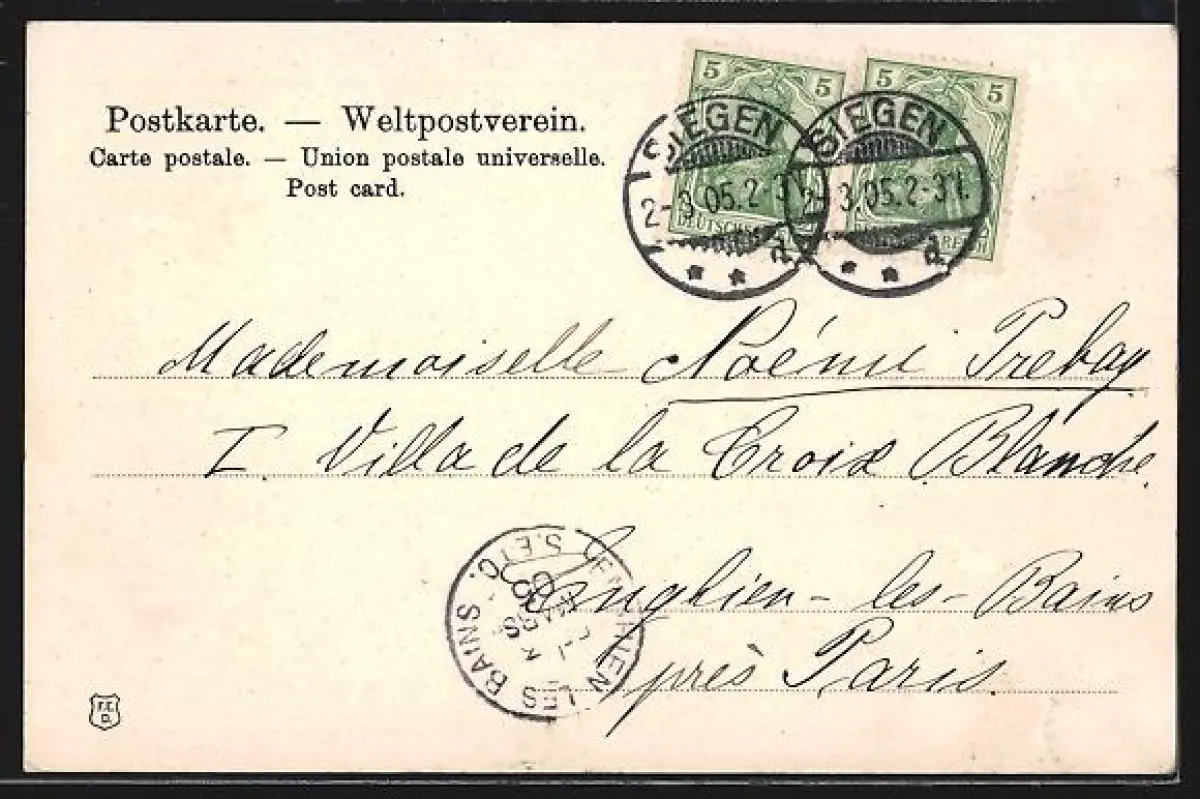 Postkarte. — Weltpostverein.
Carte postale. — Union postale universelle.
Post card.
5 5
5 5
SIEGEN
2-3.05.2-3N.
a
SIEGEN
2-3.05.2-3N.
a
DEUTSCHES
REICH
Mademoiselle Noémie Prebay
I Villa de la Croix Blanche.
Enghien-les-Bains
près Paris
ENGHIEN LES BAINS S. ET O.
F.E.
D.